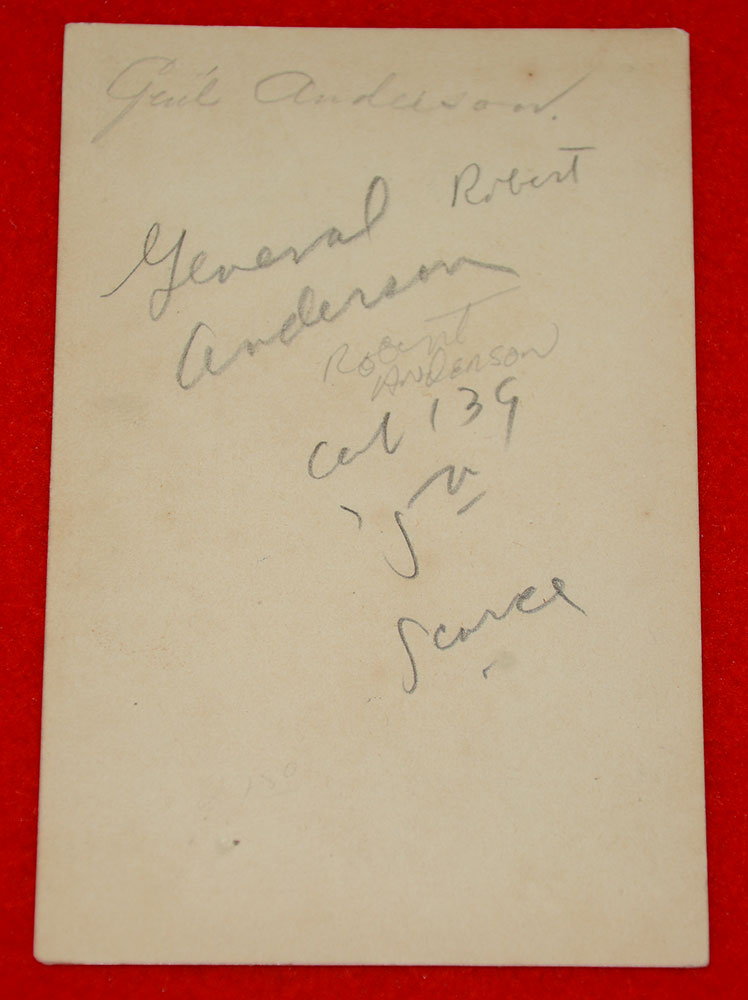 Gen'l Anderson.
General Robert
Anderson
Robert
Anderson
Cat 139
Scarce